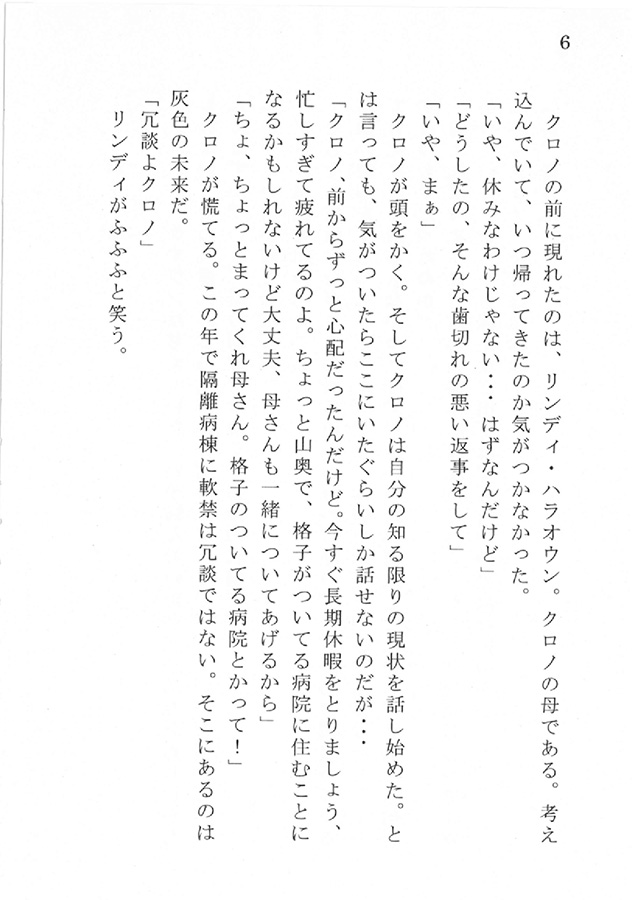 6
クロノの前に現れたのは、リンディ・ハラオウン。クロノの母である。考え
込んでいて、いつ帰ってきたのか気がつかなかった。
「いや、休みなわけじゃない・・・はずなんだけど」
「どうしたの、そんな歯切れの悪い返事をして」
「いや、まぁ」
クロノが頭をかく。そしてクロノは自分の知る限りの現状を話し始めた。と
は言っても、気がついたらここにいたぐらいしか話せないのだが・・・
「クロノ、前からずっと心配だったんだけど。今すぐ長期休暇をとりましょう、
忙しすぎて疲れてるのよ。ちょっと山奥で、格子がついてる病院に住むことに
なるかもしれないけど大丈夫、母さんも一緒についてあげるから」
「ちょ、ちょっとまってくれ母さん。格子のついてる病院とかって！」
クロノが慌てる。この年で隔離病棟に軟禁は冗談ではない。そこにあるのは
灰色の未来だ。
「冗談よクロノ」
リンディがふふふと笑う。